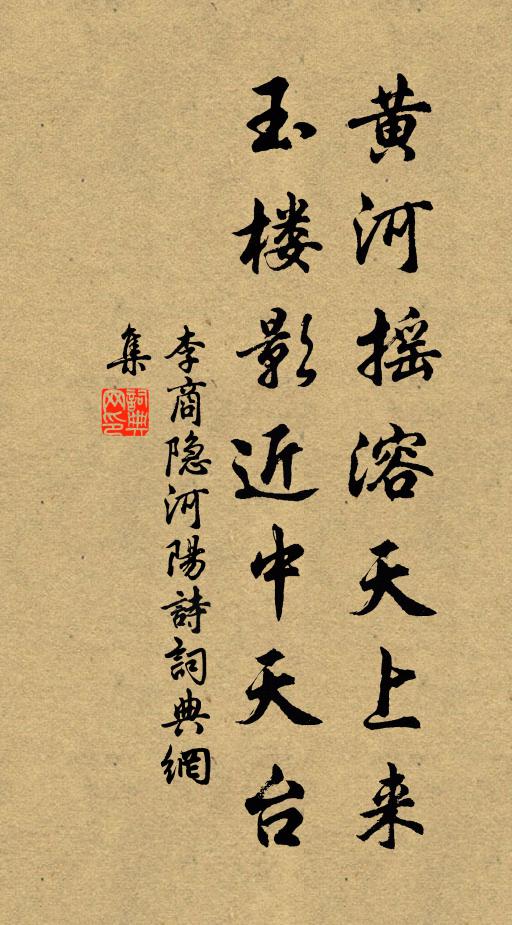 黄河摇溶天上来
玉楼影近中天台
李商隐河陽詩詞典網
集
詞典
网印